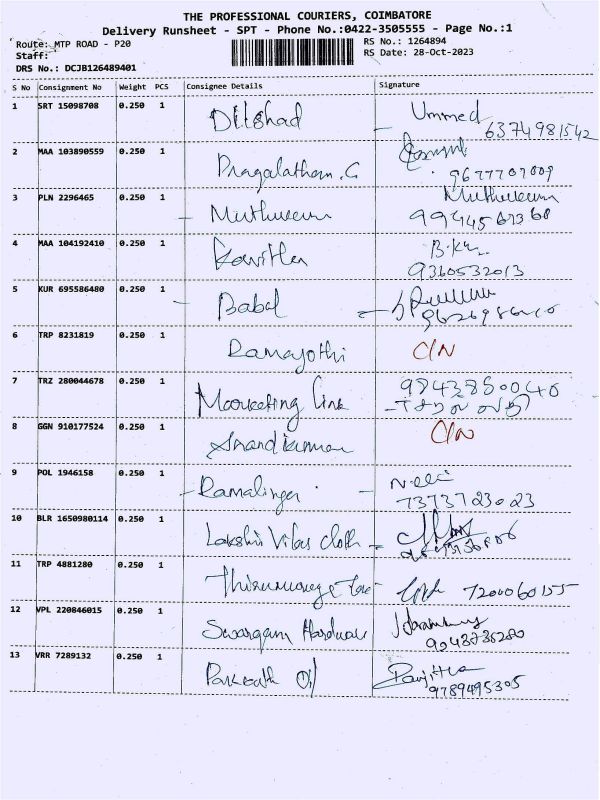 THE PROFESSIONAL COURIERS, COIMBATORE
Delivery Runsheet - SPT - Phone No.:0422-3505555 - Page No.:1
Route: MTP ROAD - P20 RS No.: 1264894
Staff: RS Date: 28-Oct-2023
DRS No.: DCJB126489401
S No Consignment No Weight PCS Consignee Details Signature
1 SRT 15098708 0.250 1 Dilshad Ummed
6374981542
2 MAA 103890559 0.250 1 Pragalatham.G
9677707009
3 PLN 2296465 0.250 1 Muthuveeru Muthuveeru
9944567368
4 MAA 104192410 0.250 1 Kavitha B.K
9360532013
5 KUR 695586480 0.250 1 Babel
6 TRP 8231819 0.250 1 Ramajothi C/N
7 TRZ 280044678 0.250 1 Marketing Link 9843850040
8 GGN 910177524 0.250 1 Anandkumar C/N
9 POL 1946158 0.250 1 Ramalinga
7373723023
10 BLR 1650980114 0.250 1 Lakshmi Vilas cloth
11 TRP 4881280 0.250 1 7200060155
12 VPL 220846015 0.250 1 Swargam Hardware
9043735280
13 VRR 7289132 0.250 1 Oil Ranjitha
9789495305